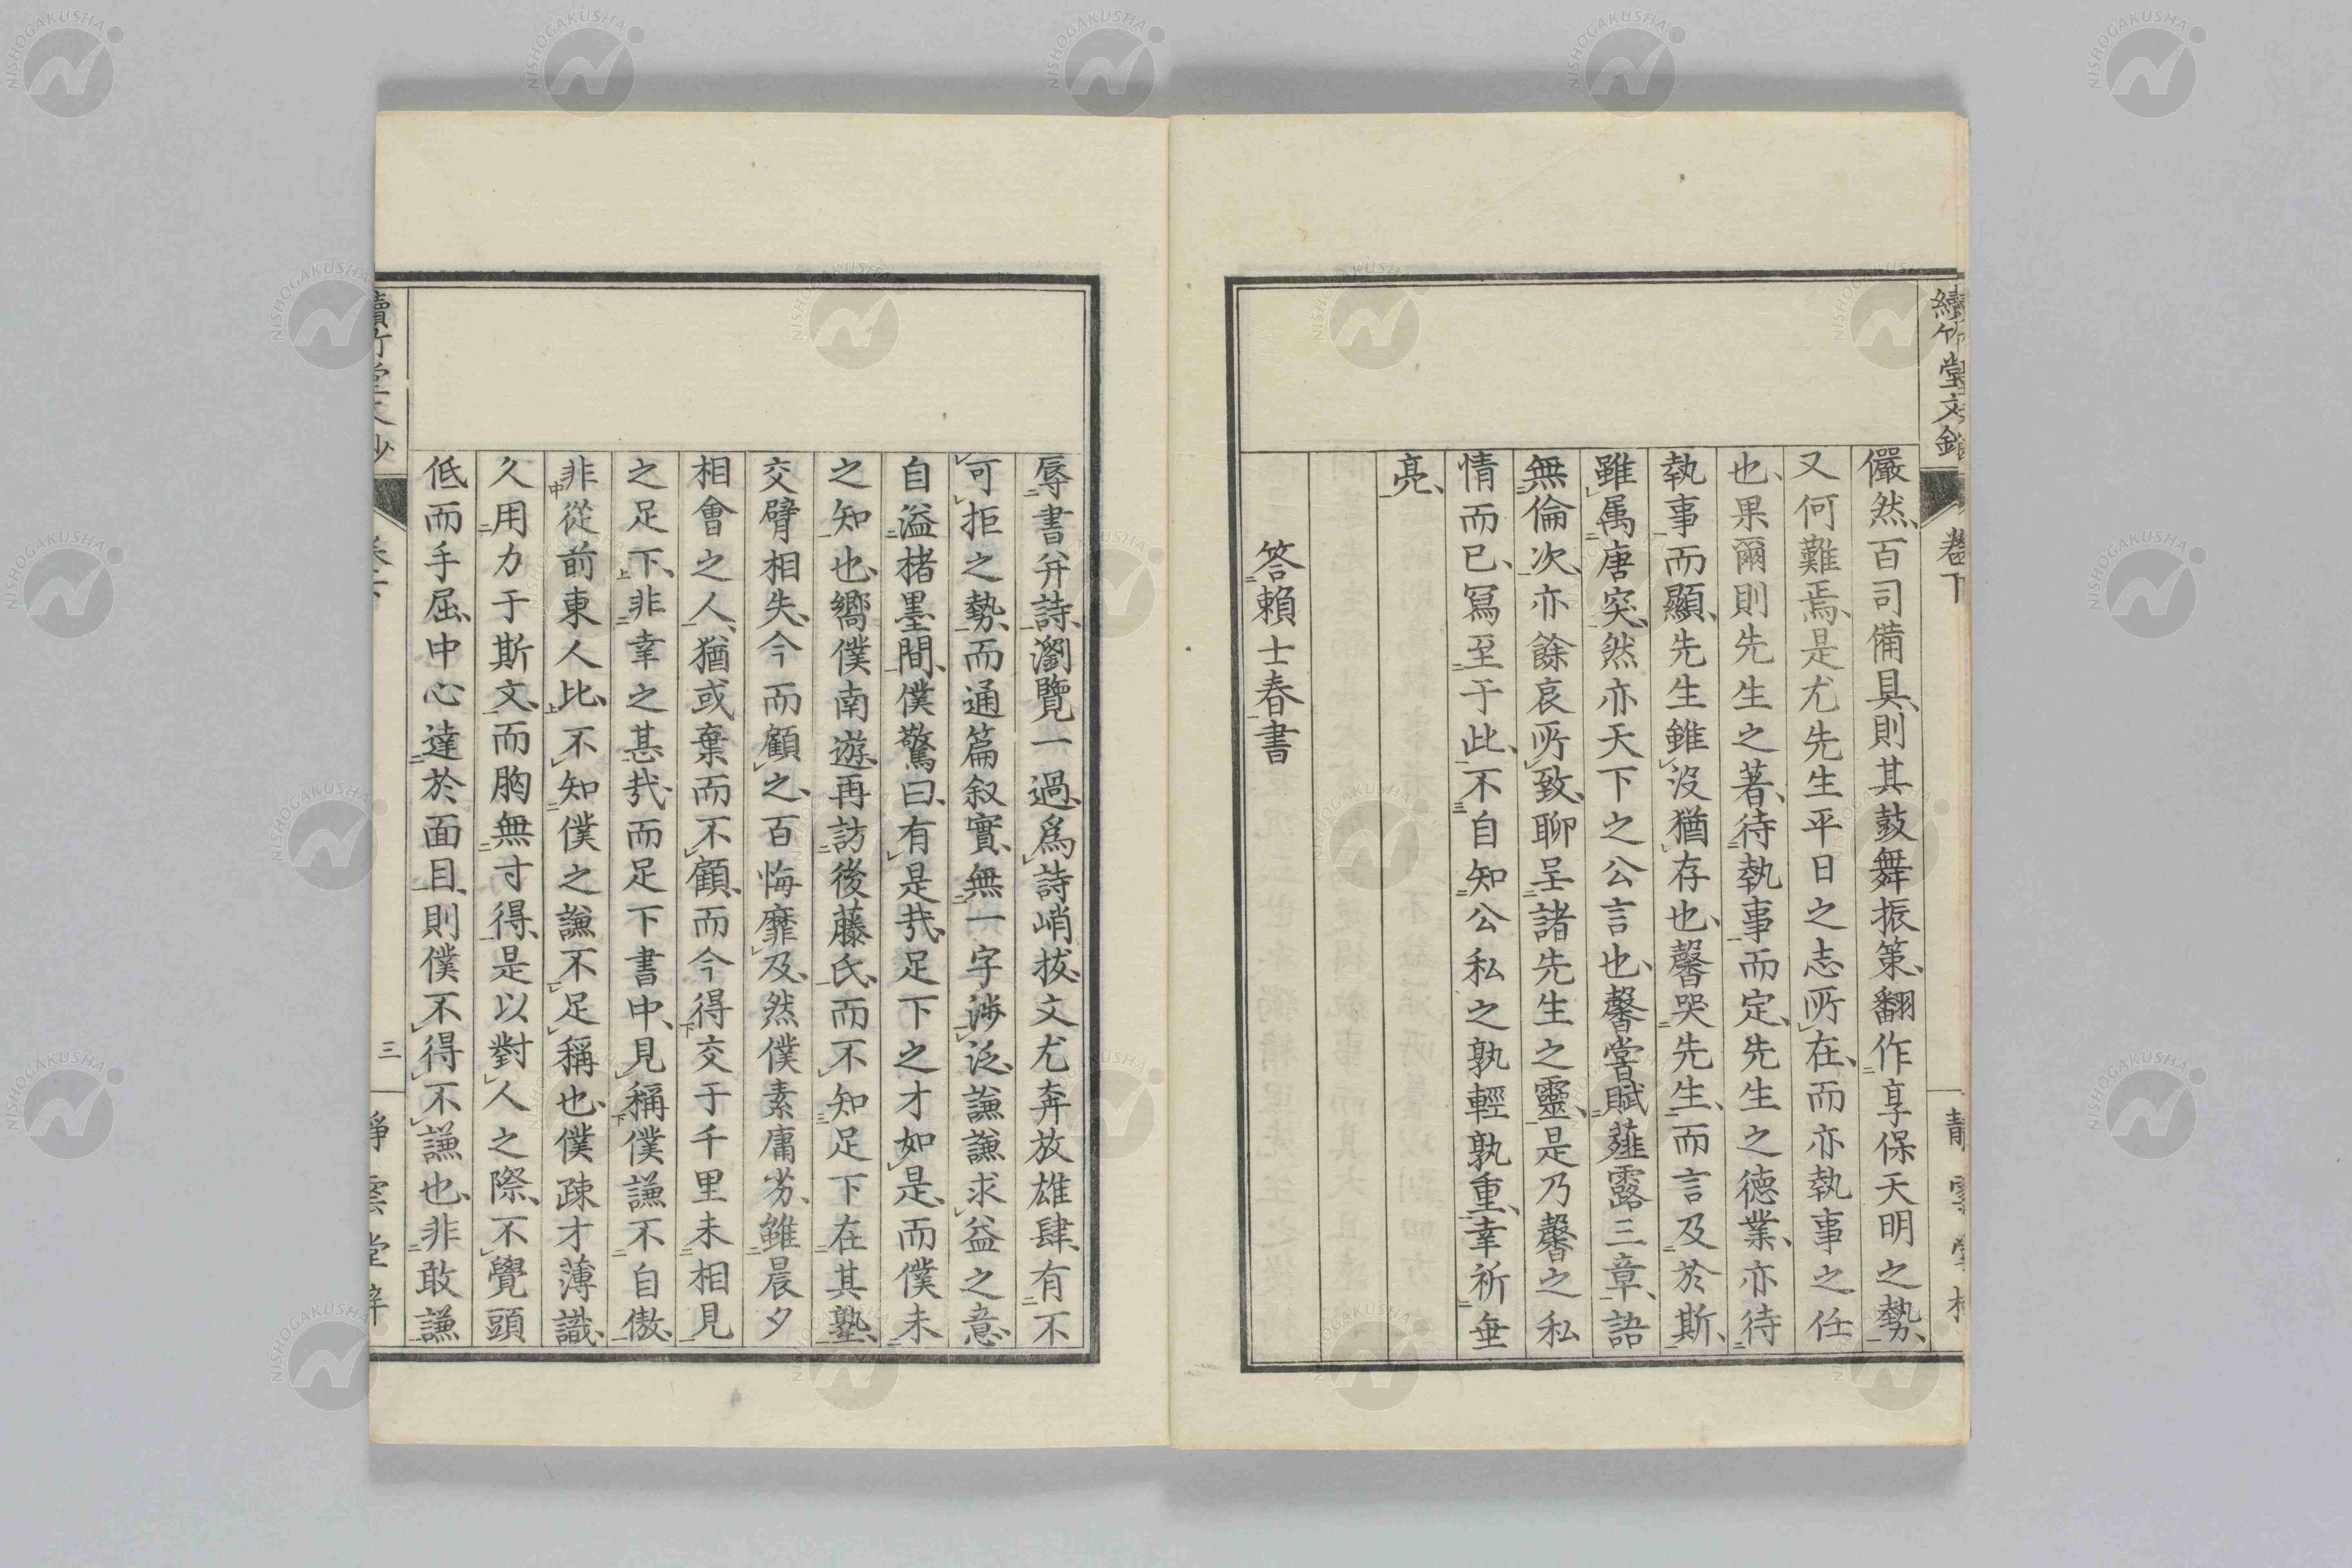 續竹堂文鈔
卷下
儼然、百司備具、則其鼓舞振策、翻作享保天明之勢、
又何難焉、是尤先生平日之志所在、而亦執事之任
也、果爾則先生之著、待執事而定、先生之德業、亦待
執事而顯、先生雖沒猶存也、馨哭先生、而言及於斯、
雖屬唐突、然亦天下之公言也、馨嘗賦薤露三章、語
無倫次、亦餘哀所致、聊呈諸先生之靈、是乃馨之私
情而已、寫至于此、不自知公私之孰輕孰重、幸祈垂
亮、
答賴士春書
辱書幷詩、瀏覽一過、爲詩峭拔、文尤奔放雄肆、有不
可拒之勢、而通篇叙實、無一字涉泛、謙謙求益之意、
自溢楮墨間、僕驚曰、有是哉、足下之才如是、而僕未
之知也、嚮僕南遊、再訪後藤氏、而不知足下在其塾、
交臂相失、今而顧之、百悔靡及、然僕素庸劣、雖晨夕
相會之人、猶或棄而不顧、而今得交于千里未相見
之足下、非幸之甚哉、而足下書中、見稱僕謙不自傲、
非從前東人比、不知僕之謙不足稱也、僕疎才薄識、
久用力于斯文、而胸無寸得、是以對人之際、不覺頭
低而手屈、中心達於面目、則僕不得不謙也、非敢謙
三